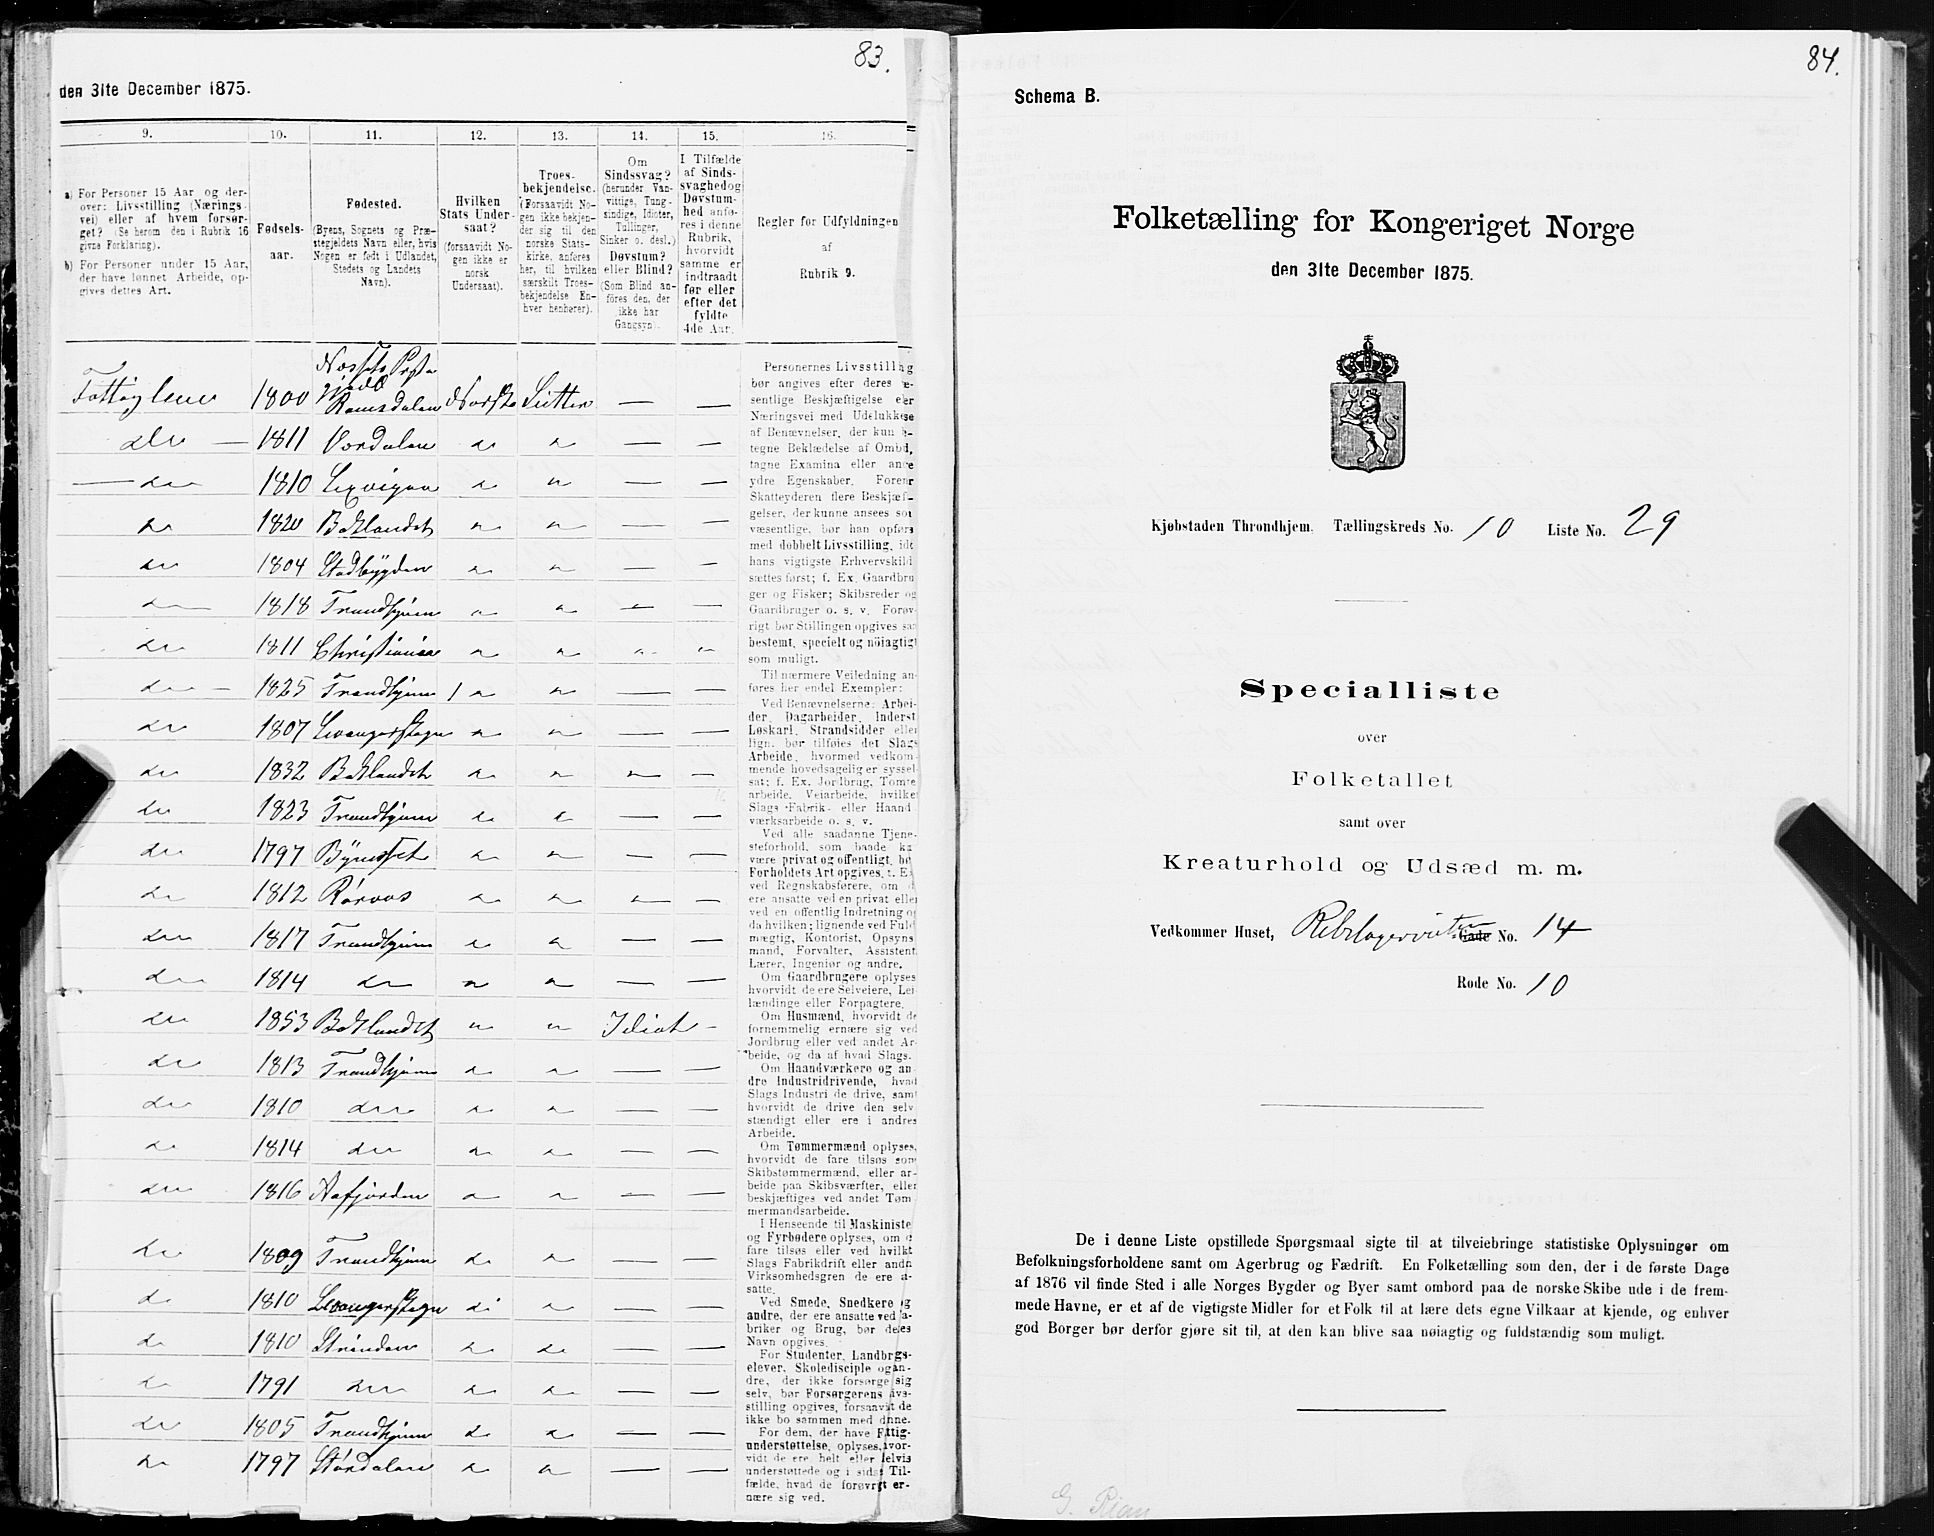 83.
den 31te December 1875.
9. 10. 11. 12. 13. 14. 15. 16.
a) For Personer 15 Aar og der-
over: Livsstilling (Nærings-
vei) eller af hvem forsør-
get? (Se herom den i Rubrik 16
givne Forklaring).
b) For Personer under 15 Aar,
der have lønnet Arbeide, op-
gives dettes Art.
Fødsels-
aar.
Fødested.
(Byens, Sognets og Præ-
stegjeldets Navn eller, hvis
Nogen er født i Udlandet,
Stedets og Landets
Navn).
Hvilken
Stats Under-
saat?
(forsaavidt No-
gen ikke er
norsk
Undersaat).
Troes-
bekjendelse.
(Forsaavidt No-
gen ikke bekjen-
der sig til den
norske Stats-
kirke, anføres
her, til hvilken
særskilt Troes-
bekjendelse En-
hver henhører).
Om
Sindssvag?
(herunder Van-
vittige, Tung-
sindige, Idioter,
Tullinger,
Sinker o. desl.)
Døvstum?
eller Blind?
(Som Blind an-
føres den, der
ikke har
Gangsyn).
I Tilfælde
af Sinds-
svaghed og
Døvstum-
hed anfø-
res i denne
Rubrik,
hvorvidt
samme er
indtraadt
før eller
efter det
fyldte
4de Aar.
Regler for Udfyldningen
af
Rubrik 9.
1800 Romsdalen Norsk Luther — —
do — 1811 Værdalen do do — —
— do 1810 Lexvigen do do — —
do 1820 Baklandet do do — —
do 1804 Stadbygden do do — —
do 1818 Trondhjem do do — —
do 1811 Christiania do do
do — 1825 Trondhjem do do — —
do 1807 do do — —
do 1832 Baklandet do do — —
do 1823 Trondhjem do do — —
do 1797 Bynesset do do — —
do 1812 Røraas do do — —
do 1817 Trondhjem do do — —
do 1814 do do do — —
do 1853 Baklandet do do Idiot —
do 1813 Trondhjem do do — —
do 1810 do do do — —
do 1814 do do do — —
do 1816 Aafjorden do do — —
do 1809 Trondhjem do do — —
do 1810 do do — —
do 1810 Strinden do do — —
do 1791 do do do — —
do 1805 Trondhjem do do — —
do 1797 Størdalen do do — —
Personernes Livsstilling
bør angives efter deres
sentlige Beskjæftigelse eller
Næringsvei med Udelukkelse
af Benævnelser, der kun
tegne Beklædelse af Ombud,
tagne Examina eller andre
ydre Egenskaber. Forener
Skatteyderen flere Beskjæf-
gelser, der kunne ansees som
væsentlige, bør han opføres
med dobbelt Livsstilling, idet
hans vigtigste Erhvervskilde
sættes først; f. Ex. Gaardbru-
ger og Fisker; Skibsreder og
Gaardbruger o. s. v. Forøv-
rigt bør Stillingen opgives saa
bestemt, specielt og nøiagtigt
som muligt.
Til nærmere Veiledning an-
føres her endel Exempler:
Ved Benævnelserne: Arbei-
der, Dagarbeider, Inderst,
Løskarl, Strandsidder eller
lign. bør tilføies det Slags
Arbeide, hvormed vedkom-
mende hovedsagelig er syssel-
sat; f. Ex. Jordbrug, Tomte-
arbeide, Veiarbeide, hvilket
Slags Fabrik- eller Haand-
værksarbeide o. s. v.
Ved alle saadanne Tjene-
steforhold, som baade kan
være privat og offentligt, bør
Forholdets Art opgives, f. Ex.
ved Regnskabsførere, om de
ere ansatte ved en privat eller
ved en offentlig Indretning og
da hvilken; lignende ved Fuld-
mægtig, Kontorist, Opsyns-
mand, Forvalter, Assistent,
Lærer, Ingeniør og andre.
Om Gaardbrugere oplyses,
hvorvidt de ere Selveiere, Lei-
lændinge eller Forpagtere.
Om Husmænd, hvorvidt de
fornemmelig ernære sig ved
Jordbrug eller ved andet Ar-
beide, og da af hvad Slags.
Om Haandværkere og an-
dre Industridrivende, hvad
Slags Industri de drive, samt
hvorvidt de drive den selv-
stændigt eller ere i andres
Arbeide.
Om Tømmermænd oplyses,
hvorvidt de fare tilsøs som
Skibstømmermænd, eller ar-
beide paa Skibsværfter, eller
beskjæftiges ved andet Tøm-
mermandsarbeide.
I Henseende til Maskinister
og Fyrbødere oplyses, om de
fare tilsøs eller ved hvilket
Slags Fabrikdrift eller anden
Virksomhedsgren de ere an-
satte.
Ved Smede, Snedkere og
andre, der ere ansatte ved Fa-
briker og Brug, bør deres
Navn opgives.
For Studenter, Landbrugs-
elever, Skoledisciple og an-
dre, der ikke forsørge sig
selv, bør Forsørgerens Livs-
stilling opgives, forsaavidt de
ikke bo sammen med denne.
For dem, der have Fattig-
understøttelse, oplyses, hvor-
vidt de ere helt eller delvis
understøttede og i sidste Til-
fælde, hvad de forøvrigt er-
nære sig ved.
84.
Schema B.
Folketælling for Kongeriget Norge
den 31te December 1875.
Kjøbstaden Throndhjem. Tællingskreds No. 10 Liste No. 29
Specialliste
over
Folketallet
samt over
Kreaturhold og Udsæd m. m.
Vedkommer Huset, Gade No. 14
Rode No. 10
De i denne Liste opstillede Spørgsmaal sigte til at tilveiebringe statistiske Oplysninger om
Befolkningsforholdene samt om Agerbrug og Fædrift. En Folketælling som den, der i de første Dage
af 1876 vil finde Sted i alle Norges Bygder og Byer samt ombord paa de norske Skibe ude i de frem-
mede Havne, er et af de vigtigste Midler for et Folk til at lære dets egne Vilkaar at kjende, og enhver
god Borger bør derfor gjøre sit til, at den kan blive saa nøiagtig og fuldstændig som muligt.
G. Rian